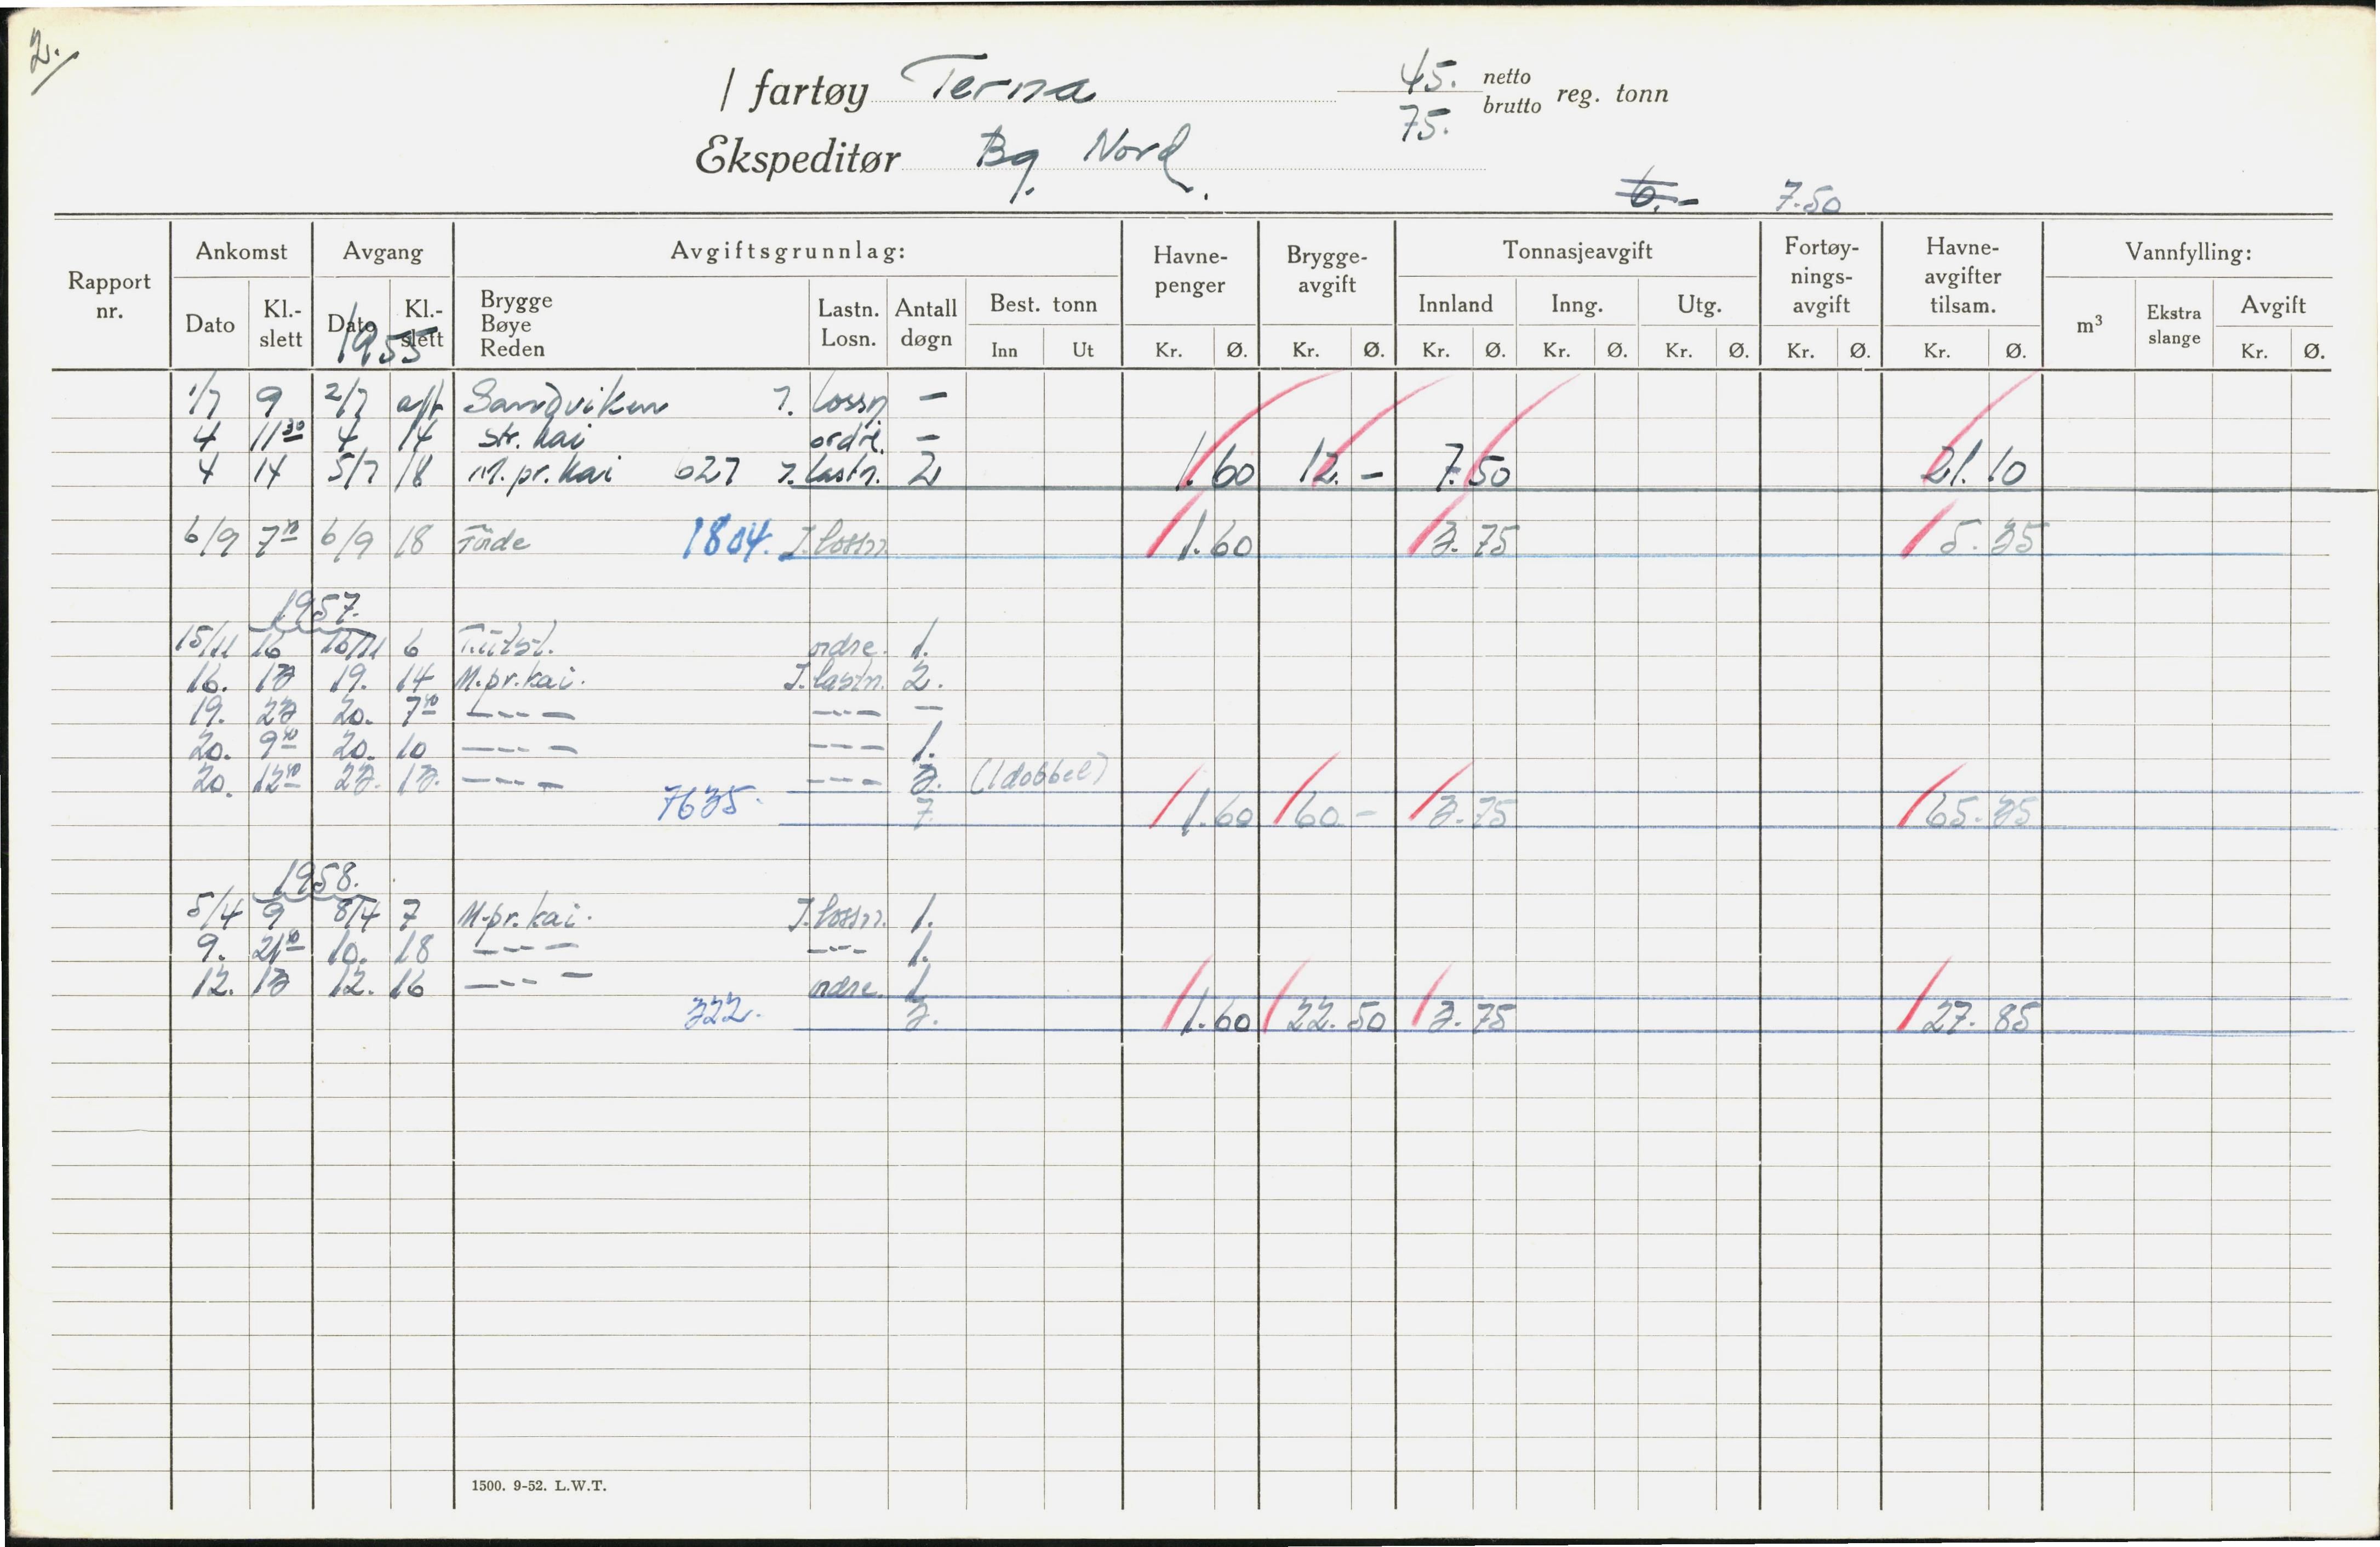 2.
/ fartøy Terna 45. netto
75. brutto reg. tonn
Ekspeditør Bg. Nord.
6.- 7.50
Rapport nr. Ankomst Avgang Avgiftsgrunnlag: Havne-penger Brygge-avgift Tonnasjeavgift Fortøy-nings-avgift Havne-avgifter tilsam. Vannfylling:
Dato Kl.-slett Dato Kl.-slett Brygge Bøye Reden Lastn. Losn. Antall døgn Best. tonn Innland Inng. Utg. m³ Ekstra slange Avgift
Inn Ut Kr. Ø. Kr. Ø. Kr. Ø. Kr. Ø. Kr. Ø. Kr. Ø. Kr. Ø. Kr. Ø.
1955
1/7 9 2/7 aft Sandviken I. lossn -
4 11 30 4 14 Str. kai ordre. -
4 14 5/7 18 M. pr. kai 627 I. lastn. 2 1.60 12.- 7.50 21.10
6/9 7 6/9 18 1804. I. lossn 1.60 3.75 5.35
1957.
15/11 16 16/11 6 ordre. 1.
16. 13 19. 14 M. pr. kai. I. lastn. 2.
19. 23 20. 7 ---- --- -
20. 9 20. 10 ---- --- 1.
20. 12 23. 13. ---- --- 3. (1 dobbel)
7635. 7. 1.60 60.- 3.75 65.35
1958.
5/4 9 8/4 7 M. pr. kai. I. lossn. 1.
9. 21 10. 18 ---- --- 1.
12. 13 12. 16 ---- ordre. 1
322. 3. 1.60 22.50 3.75 27.85
1500. 9-52. L.W.T.